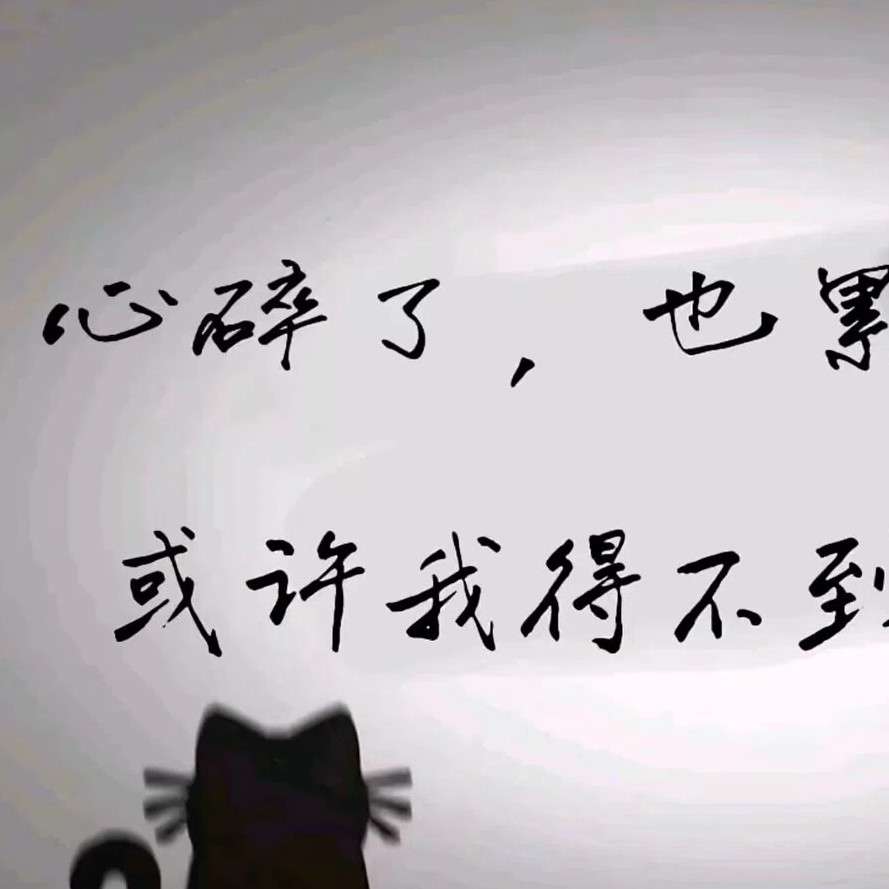 心碎了，也累
或许我得不到